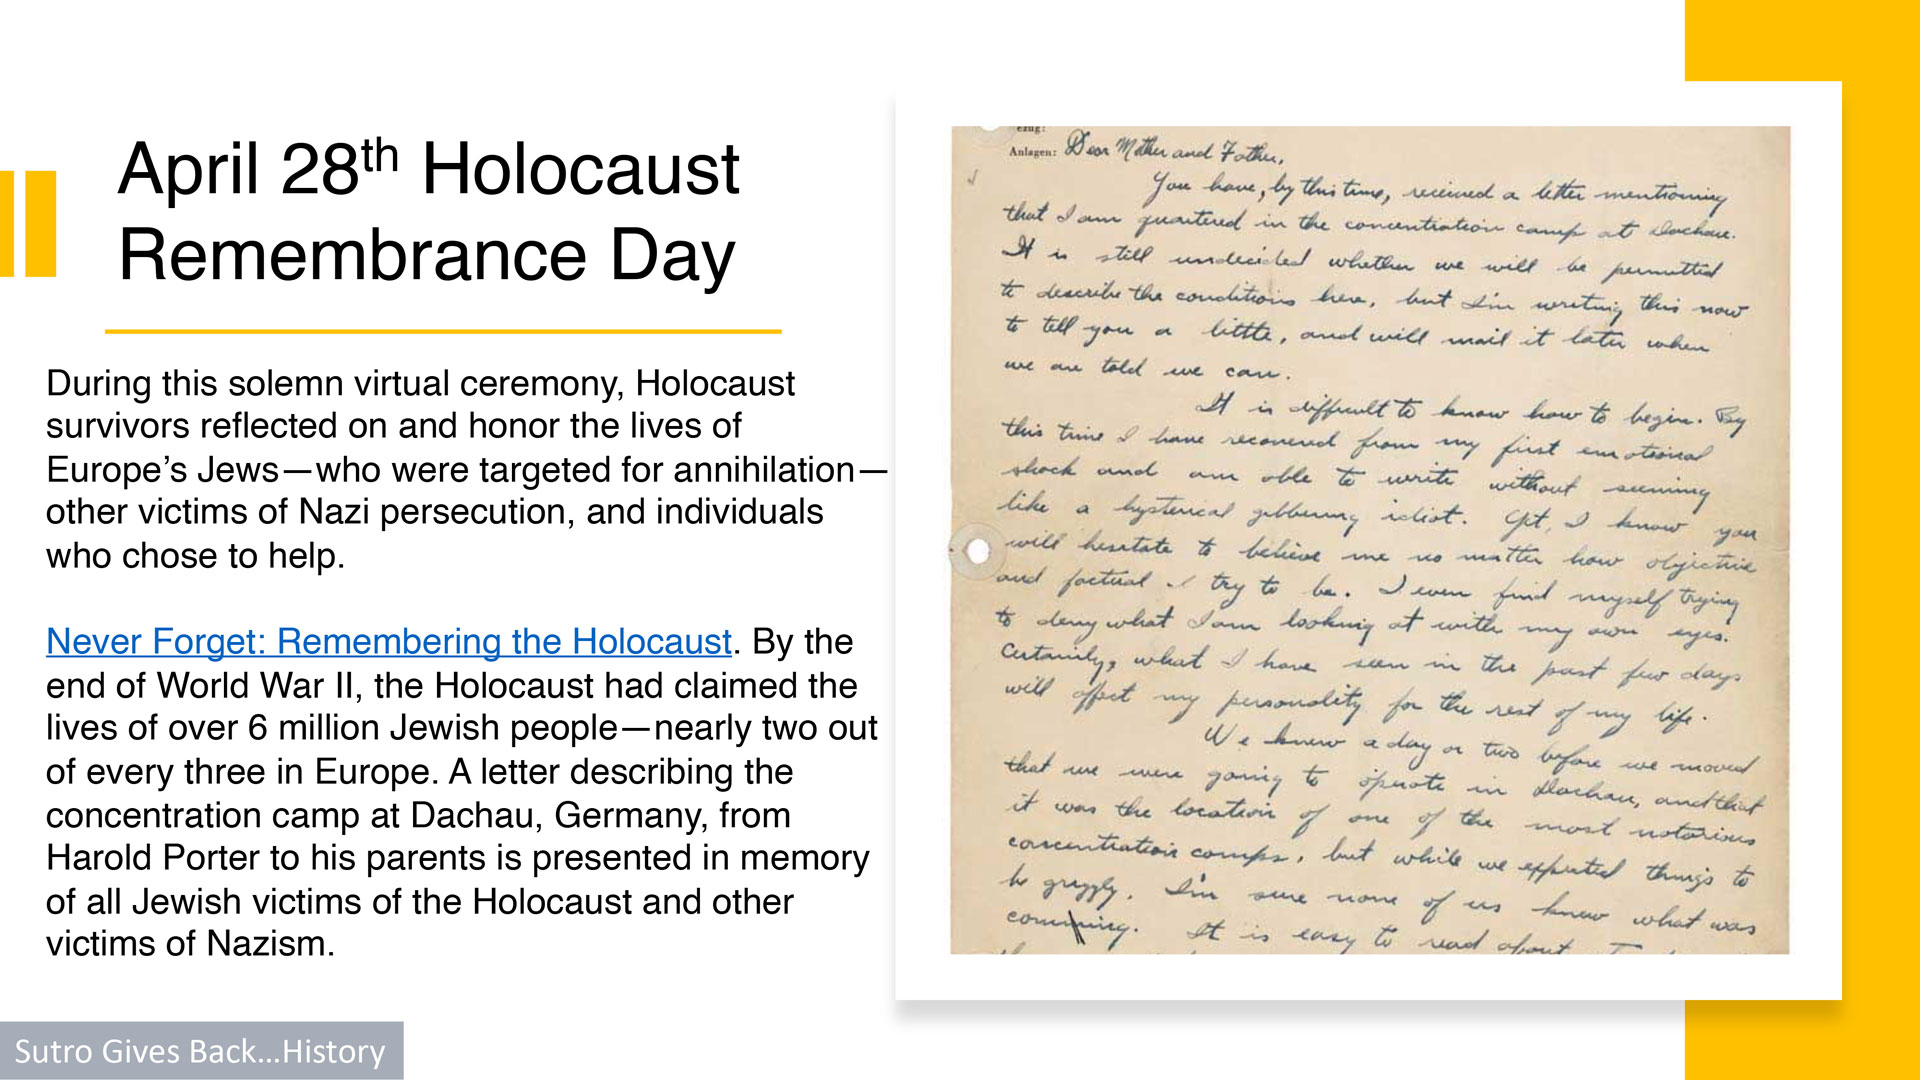 April 28th Holocaust
Remembrance Day
During this solemn virtual ceremony, Holocaust
survivors reflected on and honor the lives of
Europe’s Jews—who were targeted for annihilation—
other victims of Nazi persecution, and individuals
who chose to help.
Never Forget: Remembering the Holocaust. By the
end of World War II, the Holocaust had claimed the
lives of over 6 million Jewish people—nearly two out
of every three in Europe. A letter describing the
concentration camp at Dachau, Germany, from
Harold Porter to his parents is presented in memory
of all Jewish victims of the Holocaust and other
victims of Nazism.
Sutro Gives Back...History
Anlagen: Dear Mother and Father,
You have, by this time, received a letter mentioning
that I am quartered in the concentration camp at Dachau.
It is still undecided whether we will be permitted
to describe the conditions here, but I'm writing this now
to tell you a little, and will mail it later when
we are told we can.
It is difficult to know how to begin. By
this time I have recovered from my first emotional
shock and am able to write without seeming
like a hysterical gibbering idiot. Yet, I know you
will hesitate to believe me no matter how objective
and factual I try to be. I even find myself trying
to deny what I am looking at with my own eyes.
Certainly, what I have seen in the past few days
will affect my personality for the rest of my life.
We knew a day or two before we moved
that we were going to operate in Dachau, and that
it was the location of one of the most notorious
concentration camps, but while we expected things to
be grizzly, I'm sure none of us knew what was
coming. It is easy to read about